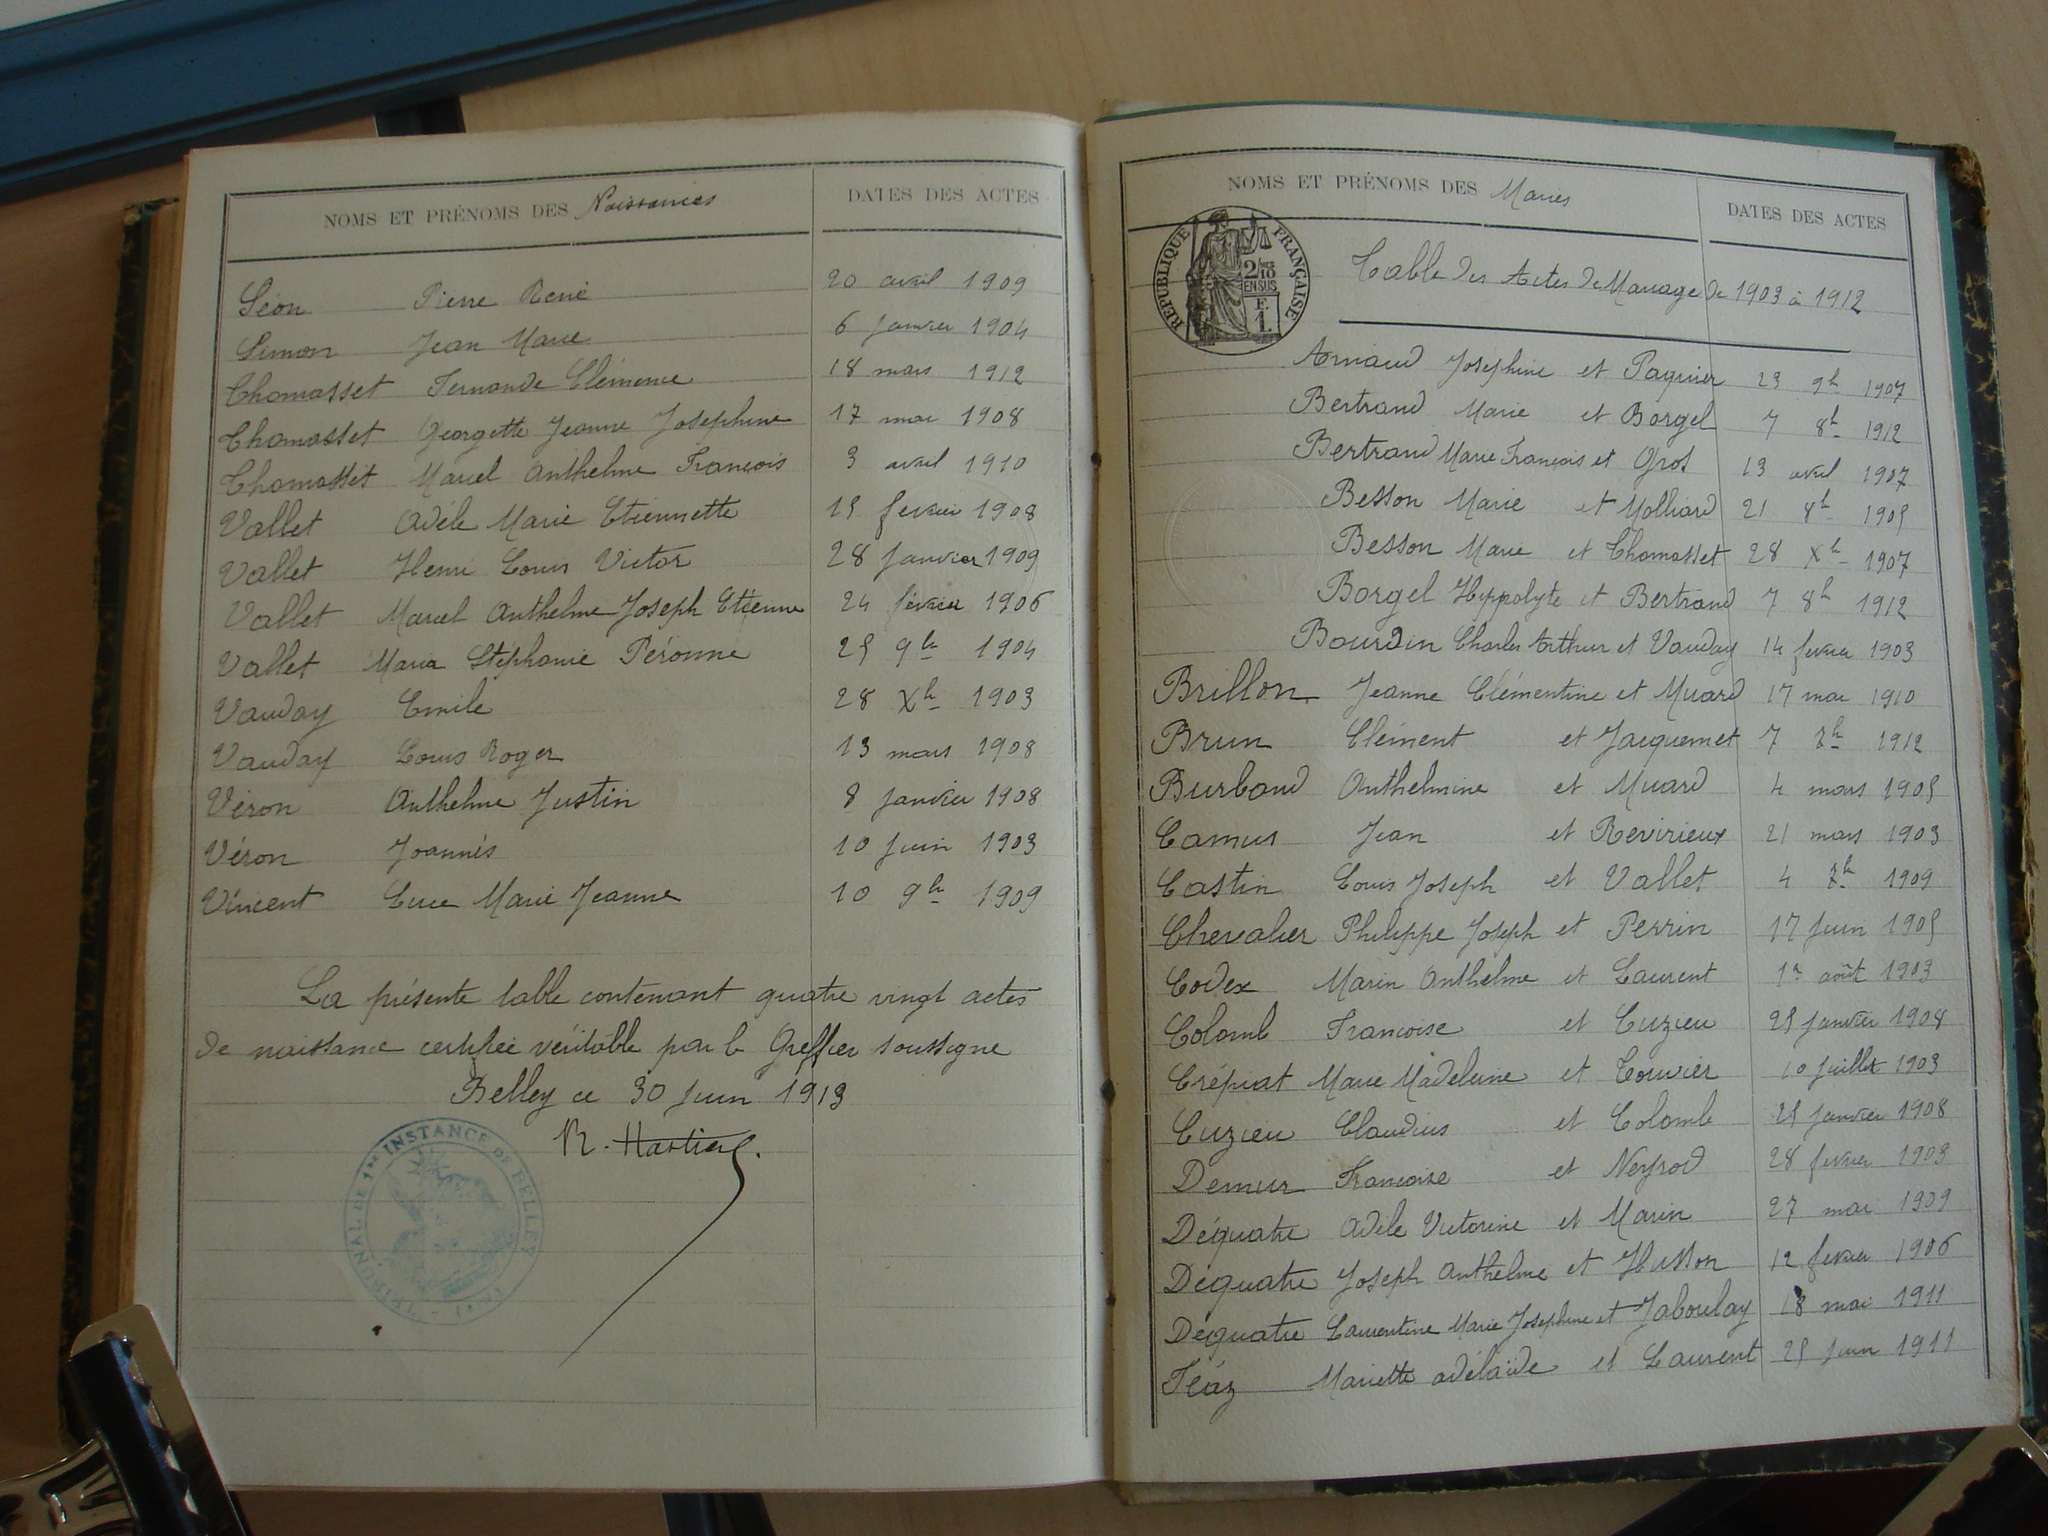 NOMS ET PRÉNOMS DES Naissances DATES DES ACTES
Séon Pierre René 20 avril 1909
Simon Jean Marie 6 Janvier 1904
Thomasset Fernande Clémence 18 mars 1912
Thomasset Georgette Jeanne Josephine 17 mai 1908
Thomasset Marcel Anthelme François 3 avril 1910
Vallet Adèle Marie Etiennette 15 fevrier 1908
Vallet Henri Louis Victor 28 Janvier 1909
Vallet Marcel Anthelme Joseph Etienne 24 février 1906
Vallet Maria Stéphanie Péronne 25 9bre 1904
Vauday Emile 28 Xbre 1903
Vauday Louis Roger 13 mars 1908
Véron Anthelme Justin 8 Janvier 1908
Véron Joannès 10 Juin 1903
Vincent Luce Marie Jeanne 10 9bre 1909
La présente table contenant quatre vingt actes
de naissance certifiée véritable par le Greffier soussigné
Belley ce 30 Juin 1913
TRIBUNAL DE 1re INSTANCE DE BELLEY
NOMS ET PRÉNOMS DES Mariés DATES DES ACTES
RÉPUBLIQUE FRANÇAISE
2/10
EN SUS
F.
1.
Table des Actes de Mariage de 1903 à 1912
Arnaud Joséphine et Paquier 23 9bre 1907
Bertrand Marie et Borgel 7 8bre 1912
Bertrand Marie François et Gros 13 avril 1907
Besson Marie et Molliard 21 8bre 1905
Besson Marie et Thomasset 28 Xbre 1907
Borgel Hyppolyte et Bertrand 7 8bre 1912
Bourdin Charles Arthur et Vauday 14 fevrier 1903
Brillon Jeanne Clémentine et Muard 17 mai 1910
Brun Clément et Jacquemet 7 1912
Burbaud Anthelmine et Muard 4 mars 1905
Camus Jean et Revirieux 21 mars 1903
Castin Louis Joseph et Vallet 4 1909
Chevalier Philippe Joseph et Perrin 17 Juin 1905
Codex Marin Anthelme et Laurent 1er août 1903
Colomb Francoise et Cuzieu 25 Janvier 1908
Crépiat Marie Madeleine et Touvier 10 Juillet 1903
Cuzieu Claudius et Colomb 25 Janvier 1908
Demur Francoise et Neyrod 28 fevrier 1903
Déquatre Adèle Victorine et Marin 27 mai 1909
Déquatre Joseph Anthelme et Husson 12 fevrier 1906
Déquatre Laurentine Marie Josephine et Jaboulay 18 mai 1911
Féaz Mariette adélaïde et Laurent 25 Juin 1911